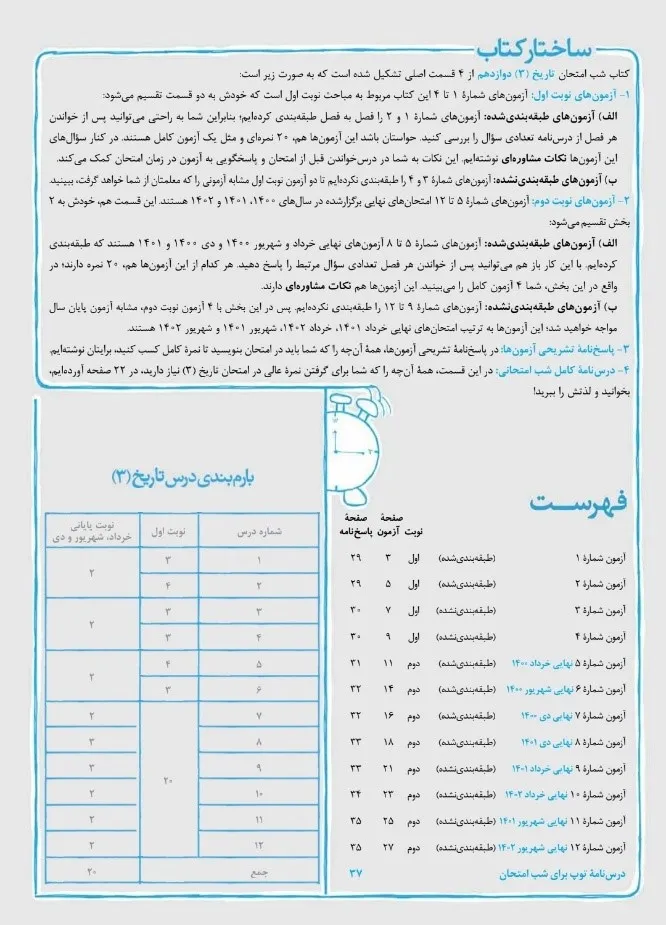 ساختار کتاب
کتاب شب امتحان تاریخ (۳) دوازدهم از ۴ قسمت اصلی تشکیل شده است که به صورت زیر است:
۱- آزمون‌های نوبت اول: آزمون‌های شمارهٔ ۱ تا ۴ این کتاب مربوط به مباحث نوبت اول است که خودش به دو قسمت تقسیم می‌شود:
الف) آزمون‌های طبقه‌بندی‌شده: آزمون‌های شمارهٔ ۱ و ۲ را فصل به فصل طبقه‌بندی کرده‌ایم؛ بنابراین شما به راحتی می‌توانید پس از خواندن
هر فصل از درس‌نامه تعدادی سؤال را بررسی کنید. حواستان باشد این آزمون‌ها هم، ۲۰ نمره‌ای و مثل یک آزمون کامل هستند. در کنار سؤال‌های
این آزمون‌ها نکات مشاوره‌ای نوشته‌ایم. این نکات به شما در درس‌خواندن قبل از امتحان و پاسخگویی به آزمون در زمان امتحان کمک می‌کند.
ب) آزمون‌های طبقه‌بندی‌نشده: آزمون‌های شمارهٔ ۳ و ۴ را طبقه‌بندی نکرده‌ایم تا دو آزمون نوبت اول مشابه آزمونی را که معلمتان از شما خواهد گرفت، ببینید.
۲- آزمون‌های نوبت دوم: آزمون‌های شمارهٔ ۵ تا ۱۲ امتحان‌های نهایی برگزارشده در سال‌های ۱۴۰۰، ۱۴۰۱ و ۱۴۰۲ هستند. این قسمت هم، خودش به ۲
بخش تقسیم می‌شود:
الف) آزمون‌های طبقه‌بندی‌شده: آزمون‌های شمارهٔ ۵ تا ۸ آزمون‌های نهایی خرداد و شهریور ۱۴۰۰ و دی ۱۴۰۰ و ۱۴۰۱ هستند که طبقه‌بندی
کرده‌ایم. با این کار باز هم می‌توانید پس از خواندن هر فصل تعدادی سؤال مرتبط را پاسخ دهید. هر کدام از این آزمون‌ها هم، ۲۰ نمره دارند؛ در
واقع در این بخش، شما ۴ آزمون کامل را می‌بینید. این آزمون‌ها هم نکات مشاوره‌ای دارند.
ب) آزمون‌های طبقه‌بندی‌نشده: آزمون‌های شمارهٔ ۹ تا ۱۲ را طبقه‌بندی نکرده‌ایم. پس در این بخش با ۴ آزمون نوبت دوم، مشابه آزمون پایان سال
مواجه خواهید شد؛ این آزمون‌ها به ترتیب امتحان‌های نهایی خرداد ۱۴۰۱، خرداد ۱۴۰۲، شهریور ۱۴۰۱ و شهریور ۱۴۰۲ هستند.
۳- پاسخ‌نامهٔ تشریحی آزمون‌ها: در پاسخ‌نامهٔ تشریحی آزمون‌ها، همهٔ آن‌چه را که شما باید در امتحان بنویسید تا نمرهٔ کامل کسب کنید، برایتان نوشته‌ایم.
۴- درس‌نامهٔ کامل شب امتحانی: در این قسمت، همهٔ آن‌چه را که شما برای گرفتن نمرهٔ عالی در امتحان تاریخ (۳) نیاز دارید، در ۲۲ صفحه آورده‌ایم،
بخوانید و لذتش را ببرید!
فهرست
نوبت صفحهٔ آزمون صفحهٔ پاسخ‌نامه
آزمون شمارهٔ ۱ (طبقه‌بندی‌شده) اول ۳ ۲۹
آزمون شمارهٔ ۲ (طبقه‌بندی‌شده) اول ۵ ۲۹
آزمون شمارهٔ ۳ (طبقه‌بندی‌نشده) اول ۷ ۳۰
آزمون شمارهٔ ۴ (طبقه‌بندی‌نشده) اول ۹ ۳۰
آزمون شمارهٔ ۵ نهایی خرداد ۱۴۰۰ (طبقه‌بندی‌شده) دوم ۱۱ ۳۱
آزمون شمارهٔ ۶ نهایی شهریور ۱۴۰۰ (طبقه‌بندی‌شده) دوم ۱۴ ۳۲
آزمون شمارهٔ ۷ نهایی دی ۱۴۰۰ (طبقه‌بندی‌شده) دوم ۱۶ ۳۲
آزمون شمارهٔ ۸ نهایی دی ۱۴۰۱ (طبقه‌بندی‌شده) دوم ۱۸ ۳۳
آزمون شمارهٔ ۹ نهایی خرداد ۱۴۰۱ (طبقه‌بندی‌نشده) دوم ۲۱ ۳۳
آزمون شمارهٔ ۱۰ نهایی خرداد ۱۴۰۲ (طبقه‌بندی‌نشده) دوم ۲۳ ۳۴
آزمون شمارهٔ ۱۱ نهایی شهریور ۱۴۰۱ (طبقه‌بندی‌نشده) دوم ۲۵ ۳۵
آزمون شمارهٔ ۱۲ نهایی شهریور ۱۴۰۲ (طبقه‌بندی‌نشده) دوم ۲۷ ۳۵
درس‌نامهٔ توپ برای شب امتحان ۳۷
بارم‌بندی درس تاریخ (۳)
شماره درس نوبت اول نوبت پایانی خرداد، شهریور و دی
۱ ۳ ۲
۲ ۴
۳ ۳ ۲
۴ ۳
۵ ۴ ۲
۶ ۳
۷ ۲۰ ۲
۸ ۳
۹ ۳
۱۰ ۲
۱۱ ۲
۱۲ ۲
جمع ۲۰